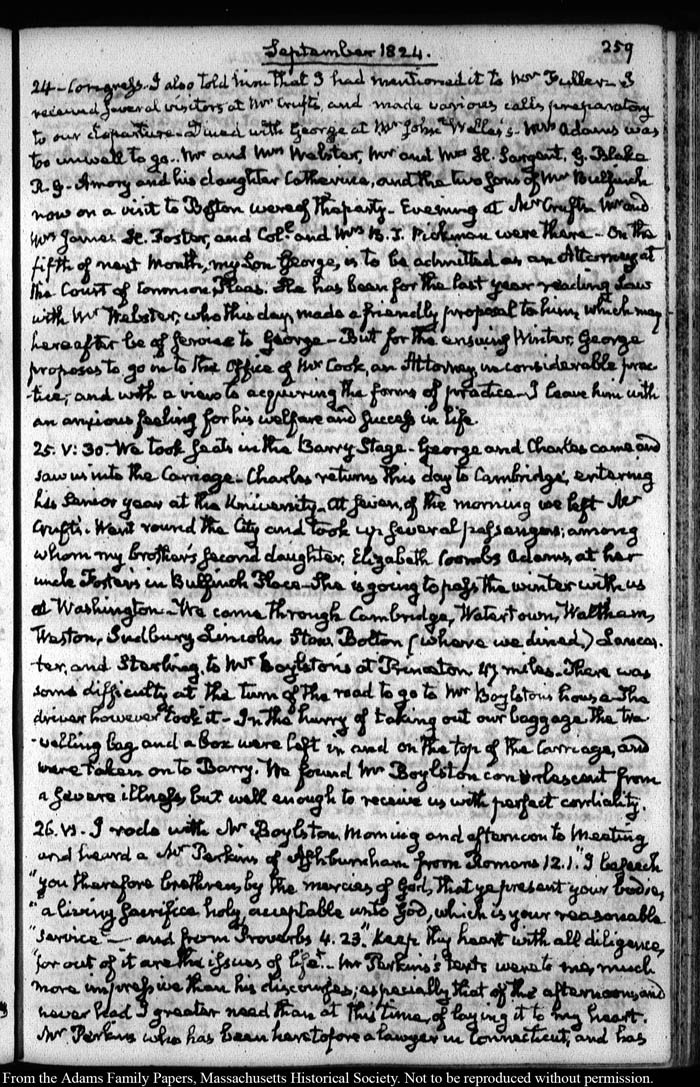 September 1824. 259
24 - Congress. I also told him that I had mentioned it to Mr Fuller - I
received several visitors at Mr Cruft's, and made various calls preparatory
to our departure - Dined with George at Mr John Welles's - Mrs Adams was
too unwell to go.. Mr and Mrs Webster, Mr and Mrs H. Sargent, G. Blake
R. G. Amory and his daughter Catherine, and the two sons of Mr Bulfinch
now on a visit to Boston were of the party - Evening at Mr Cruft's Mr and
Mrs James H. Foster, and Coll. and Mrs B. T. Pickman were there - On the
fifth of next Month, my Son George, is to be admitted as an Attorney at
the Court of Common Pleas. He has been for the last year reading Law
with Mr Webster, who this day made a friendly proposal to him, which may
hereafter be of service to George - But for the ensuing Winter, George
proposes to go on to the Office of Mr Cook, an Attorney in considerable prac-
tice; and with a view to acquiring the forms of practice - I leave him with
an anxious feeling for his welfare and success in life.
25. V: 30. We took seats in the Barry Stage - George and Charles came and
saw us into the Carriage - Charles returns this day to Cambridge, entering
his Senior year at the University - At seven, of the morning we left Mr
Cruft's. Went round the City and took up several passengers; among
whom my brother's second daughter, Elizabeth Coombs Adams, at her
uncle Foster's in Bulfinch Place - She is going to pass the winter with us
at Washington - We came through Cambridge, Watertown, Waltham,
Weston, Sudbury Lincoln Stow Bolton (where we dined,) Lancas-
ter, and Sterling, to Mr Boylston's at Princeton 47 miles - There was
some difficulty at the turn of the road to go to Mr Boylston's house - The
driver however took it - In the hurry of taking out our baggage the tra-
velling bag and a box were left in and on the top of the Carriage, and
were taken on to Barry. We found Mr Boylston convalescent from
a severe illness, but well enough to receive us with perfect cordiality.
26. VI. I rode with Mr Boylston Morning and afternoon to Meeting
and heard a Mr Perkins of Ashburnham from Romans 12.1. "I beseech
"you therefore brethren, by the mercies of God, that ye present your bodies,
"a living sacrifice holy, acceptable unto God, which is your reasonable
"service" - and from Proverbs 4. 23. "Keep thy heart with all diligence,
"for out of it are the issues of life".. Mr Perkins's texts were to me, much
more impressive than his discourses; especially that of the afternoon, and
never had I greater need than at this time, of laying it to my heart.
Mr Perkins who has been heretofore a lawyer in Connecticut, and has
From the Adams Family Papers, Massachusetts Historical Society. Not to be reproduced without permission.